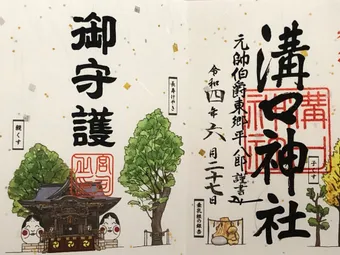 御守護
長寿けやき
親くす
宮司之印
溝口神社
元帥伯爵東郷平八郎謹書
令和四年六月二十七日
溝口神社